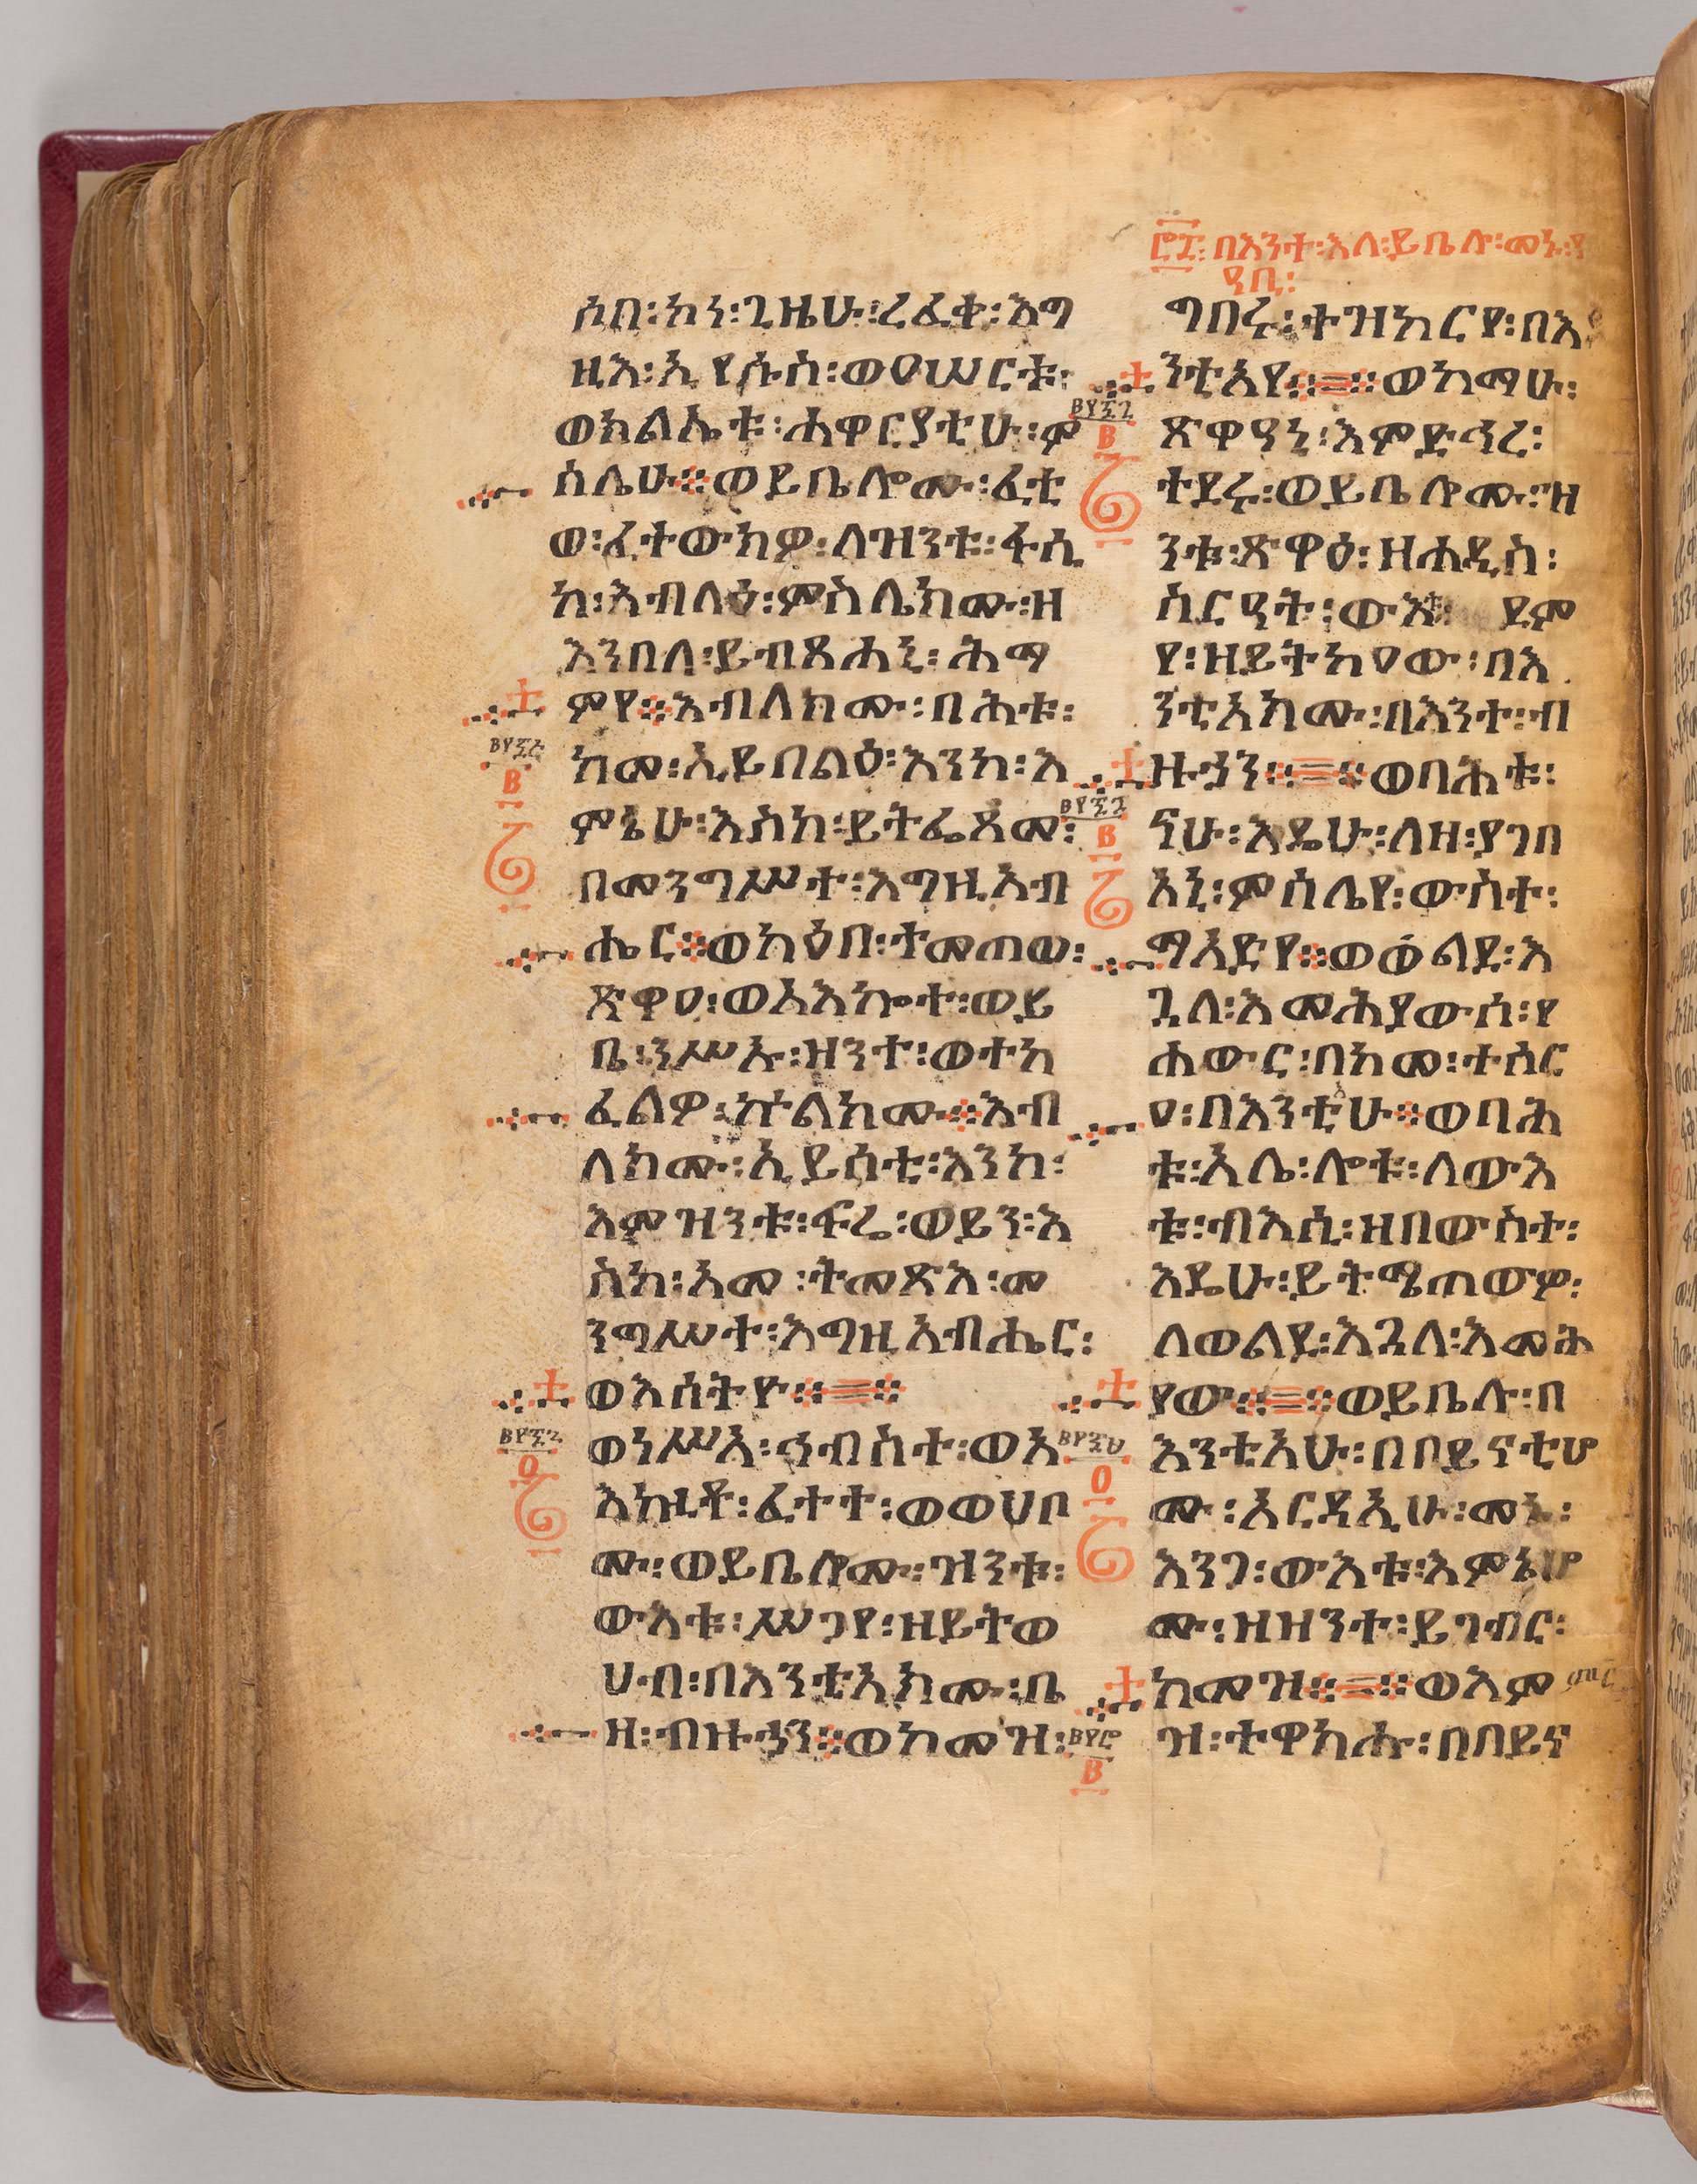 ሶበ፡ኮነ፡ጊዜሁ፡ረፈቀ፡እግ
ዚእ፡ኢየሱስ፡ወዐሠርቱ፡
ወክልኤቱ፡ሐዋርያቲሁ፡ም
ስሌሁ፨ወይቤሎሙ፡ፈቲ
ወ፡ፈተውክዎ፡ለዝንቱ፡ፋሲ
ካ፡እብላዕ፡ምስሌክሙ፡ዘ
እንበለ፡ይብጻሐኒ፡ሕማ
ምየ፨እብለክሙ፡በሕቱ፡
ከመ፡ኢይበልዕ፡እንከ፡እ
ምኔሁ፡እስከ፡ይትፌጸም፡
በመንግሥተ፡እግዚአብ
ሔር፨ወካዕበ፡ተመጠወ፡
ጽዋዐ፡ወአእኰተ፡ወይ
ቤ፡ንሥኡ፡ዝንተ፡ወተካ
ፈልዎ፡ኵልክሙ፨እብ
ለክሙ፡ኢይሰቲ፡እንከ፡
እምዝንቱ፡ፍሬ፡ወይን፡እ
ስከ፡አመ፡ትመጽእ፡መ
ንግሥተ፡እግዚአብሔር፡
ወእሰትዮ፨፨
ወነሥአ፡ኅብስተ፡ወአ
እኰቶ፡ፈተተ፡ወወሀቦ
ሙ፡ወይቤሎሙ፡ዝንቱ፡
ውእቱ፡ሥጋየ፡ዘይትወ
ሀብ፡በእንቲአክሙ፡ቤ
ዘ፡ብዙኃን፨ወከመዝ፡
፻፹፡በእንተ፡እለ፡ይቤሉ፡መኑ፡የ
ዓቢ፡
ግበሩ፡ተዝካርየ፡በእ
ንቲአየ፨፨ወከማሁ፡
ጽዋዓኒ፡እምድኅረ፡
ተደሩ፡ወይቤሎሙ፡ዘ
ንቱ፡ጽዋዕ፡ዘሐዲስ፡
ስርዓት፡ውእቱ፡ደም
የ፡ዘይትከዐው፡በእ
ንቲአክሙ፡በእንተ፡ብ
ዙኃን፨፨ወባሕቱ፡
ናሁ፡እዴሁ፡ለዘ፡ያገብ
አኒ፡ምስሌየ፡ውስተ፡
ማእድየ፨ወወልደ፡እ
ጓለ፡እመሕያውሰ፡የ
ሐውር፡በከመ፡ተሰር
ዐ፡በእንቲአሁ፨ወባሕ
ቱ፡አሌ፡ሎቱ፡ለውእ
ቱ፡ብእሲ፡ዘበውስተ፡
እዴሁ፡ይትሜጠውዎ፡
ለወልደ፡እጓለ፡እመሕ
ያው፨፨ወይቤሉ፡በ
እንቲአሁ፡በበይናቲሆ
ሙ፡አርዳኢሁ፡መኑ፡
እንጋ፡ውእቱ፡እምኔሆ
ሙ፡ዘዝንተ፡ይገብር፡
ከመዝ፨፨ወእም
ዝ፡ተዋካሑ፡በበይና